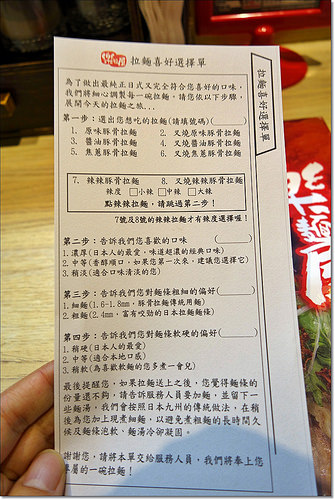 樂麵屋 拉麵喜好選擇單
拉麵喜好選擇單
為了做出最純正日式又完全符合您喜好的口味，
我們將細心調製每一碗拉麵。請您依以下步驟，
展開今天的拉麵之旅...
第一步：選出您想吃的拉麵(請填號碼)( )
1. 原味豚骨拉麵 2. 叉燒原味豚骨拉麵
3. 醬油豚骨拉麵 4. 叉燒醬油豚骨拉麵
5. 焦蔥豚骨拉麵 6. 叉燒焦蔥豚骨拉麵
7. 辣辣豚骨拉麵 8. 叉燒辣辣豚骨拉麵
辣度 □小辣 □中辣 □大辣
點辣辣拉麵，請跳過第二步！
7號及8號的辣辣拉麵才有辣度選擇喔！
第二步：告訴我們您喜歡的口味 ( )
1. 濃厚(日本人的最愛，味道超濃的經典口味)
2. 中等(香醇順口，如果您第一次來，建議您選擇它)
3. 稍淡(適合口味清淡的您)
第三步：告訴我們您對麵條粗細的偏好( )
1. 細麵(1.6-1.8mm，豚骨拉麵傳統用麵)
2. 粗麵(2.4mm，富有咬勁的日本拉麵麵條)
第四步：告訴我們您對麵條軟硬的偏好( )
1. 稍硬(日本人的最愛)
2. 中等(適合本地口感)
3. 稍軟(為喜歡軟麵的您多煮一會兒)
最後提醒您，如果拉麵送上之後，您覺得麵條的
份量還不夠，請告訴服務人員要加麵，並留下一
些麵湯，我們會按照日本九州的傳統做法，在稍
後為您加上現煮細麵，以避免煮粗麵的長時間久
候及麵條泡軟、麵湯冷卻凝固。
謝謝您，請將本單交給服務人員，我們將奉上您
專屬的一碗拉麵！
樂麵屋